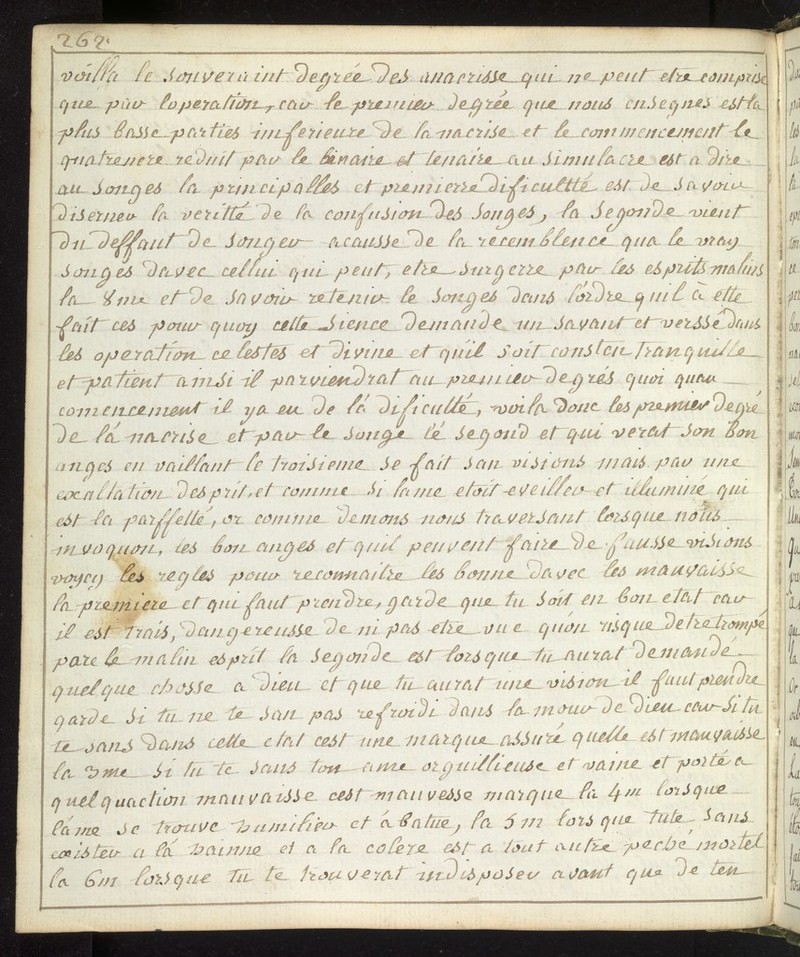 262.
voilla le souveraint degrée des anacrisse qui ne peut etre comprise
que par loperation, car le premier degrée que nous ensegnes est la
plus basse parties imferieure de la nacrise et le commencement le
quatrenere reduit par le binaire et tenaire au simulacre est a dire
au songes la principalles et premierre dificultté est de savoir
diserner la veritté de la confusion des songes, la segonde vient
du deffaut de songer acausse de la recemblence qua le vray
songes davec cellui qui peut, etre surgerre par les esprits malins
la 3me et de savoir retenir le songes dans l'ordre quil à etté
fait ces pour quoy cette sience demande un savant et verssé dans
les operation celestes et divine et quil soit consten tranquille
et patient ainsi il parviendrat au premier degrés quoi quau
comencement il ya eu de lá dificulté, voila donc les premier degré
de lá nacrise et par le songe lé segond et qui verat son bon
anges en vaillant le troisieme se fait san visions mais par une
exaltation desprit, et comme si lame etoit eveiller et illuminé qui
est la parffetté, or comme demons nous traversant lorsque nous
invoquon, les bon anges et quil peuvent faire de fausse visions
voycy les regles pour reconnaitre les bonne davec les mauvaisse
la premiere et qui faut prendre, garde que tu soit en bon etat car
il est trais, dangereusse de ni pas etre vue quon risque detre trompé
pare le malin esprit la segonde est lorsque tu aurat demandé
quelque chosse a dieu et que tu aurat une vision il faut prendre
garde si tu ne te san pas refroidi dans lamour de dieu car si tu
te sans dans cette etat cest une marque assuré quelle est mauvaisse
la 3me si tu te sans ton ame orguillieuse et vaine et porté a
quelquaction mauvaisse cest mauvesse marque la 4m lorsque
láme se trouve humilier et ábatue, la 5m lors que tute sans
exister a lá hainne et a la colere est a tout autre peché mortel
la 6m lorsque tu te trouverat indisposer avant que de ten